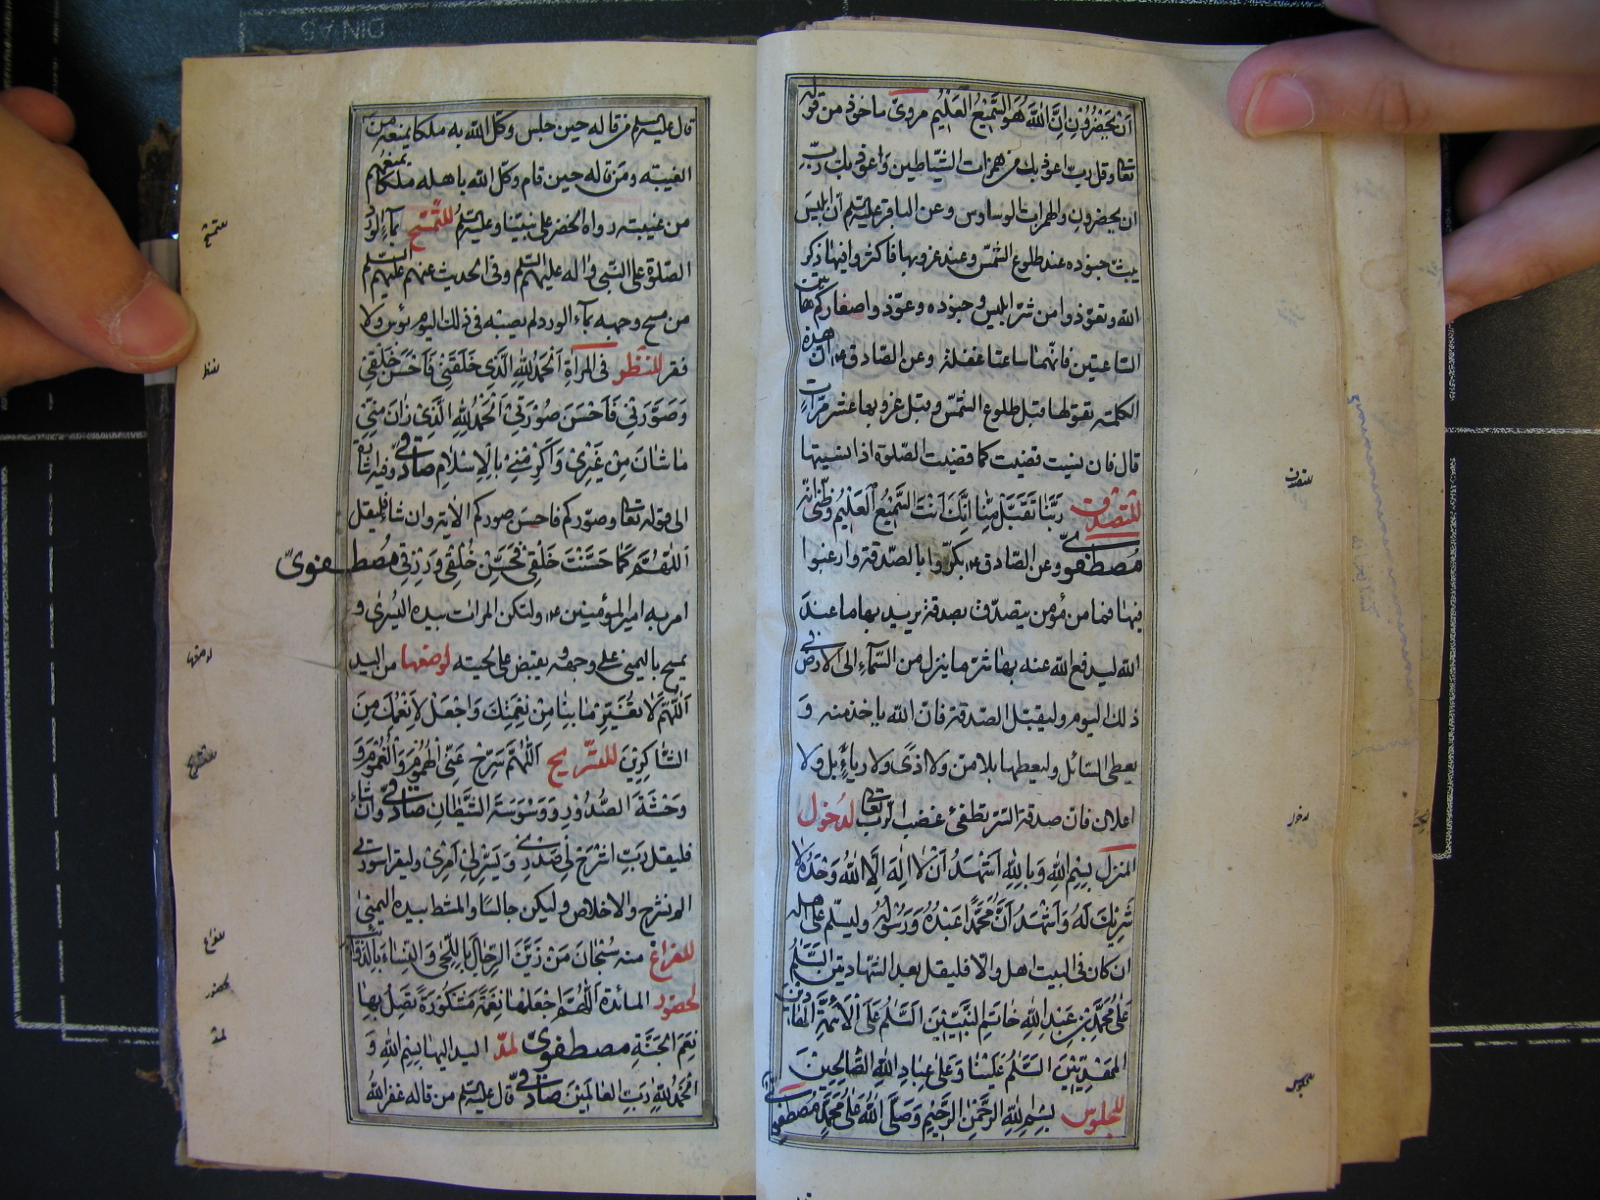 اَنْ يَحْضُرُونِ اِنَّ اللّٰهَ هُوَ السَّمِيعُ الْعَلِيْمُ مروىّ ماخوذ من قوله
تعالى وقل ربّ اعوذ بك من همزات الشّياطين واعوذ بك ربّ
ان يحضرون ولهمزات الوساوس وعن الباقر عليه السلم انّ ابليس
يبثّ جنوده عند طلوع الشّمس وعند غروبها فاكثروا فيها ذكر
الله وتعوّذوا من شرّ ابليس وجنوده وعوّذوا صغاركم هاتين
السّاعتين فانّهما ساعتا غفلة وعن الصّادق ع انّ هذه
الكلمة تقولها قبل طلوع الشّمس وقبل غروبها عشر مرّات
قال فان نسيت قضيت كما قضيت الصّلوة اذا نسيتها
للتصدّق رَبَّنَا تَقَبَّلْ مِنَّا اِنَّكَ اَنْتَ السَّمِيعُ الْعَلِيْمُ
مصطفوىّ وعن الصّادق ع بكّروا بالصّدقة وارغبوا
فيها فما من مؤمن يتصدّق بصدقة يريد بها ما عند
الله ليدفع الله عنه بها شرّ ما ينزل من السّماء الى الارض فى
ذلك اليوم وليقبّل الصّدقة فانّ الله ياخذ منه و
يعطى السّائل وليعطها بلا منّ ولا اذًى ولا رياء بل ولا
اعلان فانّ صدقة السّرّ تطفئ غضب الربّ تعالى لدخول
المنزل بِسْمِ اللّٰهِ وَبِاللّٰهِ اَشْهَدُ اَنْ لَا اِلٰهَ اِلَّا اللّٰهُ وَحْدَهُ لَا
شَرِيْكَ لَهُ وَاَشْهَدُ اَنَّ مُحَمَّدًا عَبْدُهُ وَرَسُوْلُهُ وليسلّم على اهله
ان كان فى البيت اهل والّا فليقل بعد الشهادتين السَّلٰمُ
عَلٰى مُحَمَّدِ بْنِ عَبْدِ اللّٰهِ خَاتَمِ النَّبِيِّيْنَ السَّلٰمُ عَلَى الْاَئِمَّةِ الْهَادِيْنَ
الْمَهْدِيِّيْنَ السَّلٰمُ عَلَيْنَا وَعَلٰى عِبَادِ اللّٰهِ الصَّالِحِيْنَ
للجلوس بِسْمِ اللّٰهِ الرَّحْمٰنِ الرَّحِيْمِ وَصَلَّى اللّٰهُ عَلٰى مُحَمَّدٍ مصطفوى
للتصدق
لدخول
للجلوس
قال عليه السلم من قاله حين جلس وكّل الله به ملكا يمنعه من
الغيبة ومن قاله حين قام وكّل الله باهله ملكا يمنعهم
من غيبته رواه الخضر على نبيّنا وعليه السلم للتّمسّح بماء الورد
الصّلوة على النّبى واله عليهم السّلم وفى الحديث عنهم عليهم السّلم
من مسح وجهه بماء الورد لم يصبه فى ذلك اليوم بؤس ولا
فقر للنّظر فى المراة اَلْحَمْدُ لِلّٰهِ الَّذِيْ خَلَقَنِيْ فَاَحْسَنَ خَلْقِيْ
وَصَوَّرَنِيْ فَاَحْسَنَ صُوْرَتِيْ اَلْحَمْدُ لِلّٰهِ الَّذِيْ زَانَ مِنِّيْ
مَا شَانَ مِنْ غَيْرِيْ وَاَكْرَمَنِيْ بِالْاِسْلَامِ صادقى وفيه اشارة
الى قوله تعالى وصوّركم فاحسن صوركم الاية وان شاء فليقل
اَللّٰهُمَّ كَمَا حَسَّنْتَ خَلْقِيْ فَحَسِّنْ خُلُقِيْ وَرِزْقِيْ مصطفوىّ
امر به امير المؤمنين ع ولتكن المرات بيده اليسرى و
يمسح باليمنى على وجهه ويقبض على لحيته لوضعها من اليد
اَللّٰهُمَّ لَا تُغَيِّرْ مَا بِنَا مِنْ نِعَمِكَ وَاجْعَلْ لِاَنْعُمِكَ مِنَ
الشَّاكِرِيْنَ للتّسريح اَللّٰهُمَّ سَرِّحْ عَنِّي الْهُمُوْمَ وَالْغُمُوْمَ وَ
وَحْشَةَ الصُّدُوْرِ وَوَسْوَسَةَ الشَّيْطَانِ صادقى وان شاء
فليقل رَبِّ اشْرَحْ لِيْ صَدْرِيْ وَيَسِّرْ لِيْ اَمْرِيْ وليقرا سورتى
الم نشرح والاخلاص وليكن جالسًا والمشط بيده اليمنى
للفراغ منه سُبْحَانَ مَنْ زَيَّنَ الرِّجَالَ بِاللِّحٰى وَالنِّسَاءَ بِالذَّوَائِبِ
لحضور المائدة اَللّٰهُمَّ اجْعَلْهَا نِعْمَةً مَشْكُوْرَةً تَصِلُ بِهَا
نَعِيْمَ الْجَنَّةِ مصطفوىّ لمدّ اليد اليها بِسْمِ اللّٰهِ وَ
الْحَمْدُ لِلّٰهِ رَبِّ الْعَالَمِيْنَ صادقى قال عليه السلم من قاله غفر الله
للتمسّح
للنظر
لوضعها
للتسريح
للفراغ
لحضور
لمدّ
DIN A5